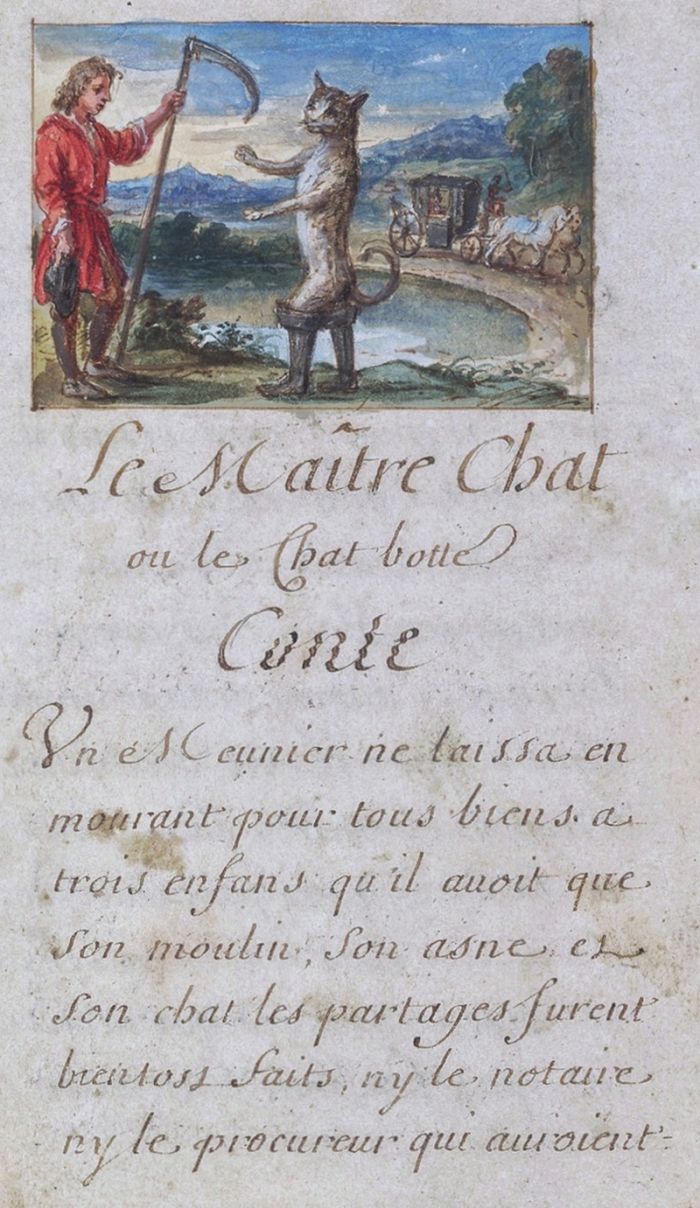 Le Maître Chat
ou le Chat botté
Conte
Un Meunier ne laissa en
mourant pour tous biens a
trois enfans qu'il auoit que
son moulin, son asne et
son chat les partages furent
bientost faits, ny le notaire
ny le procureur qui auroient